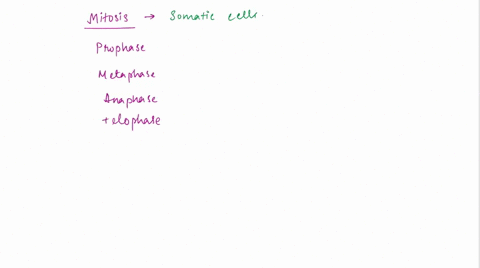 Mitosis → Somatic cells.
Prophase
Metaphase
Anaphase
telophase